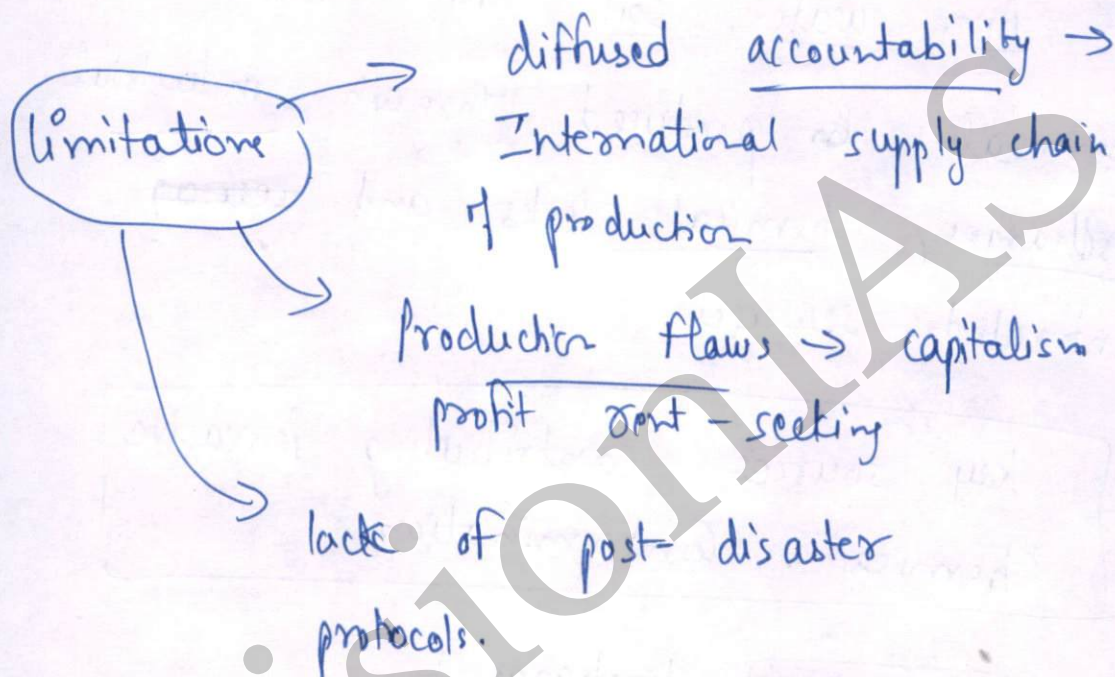 diffused accountability →
limitations
International supply chain
of production
Production flaws → capitalism
profit rent-seeking
lack of post-disaster
protocols.
VisionIAS